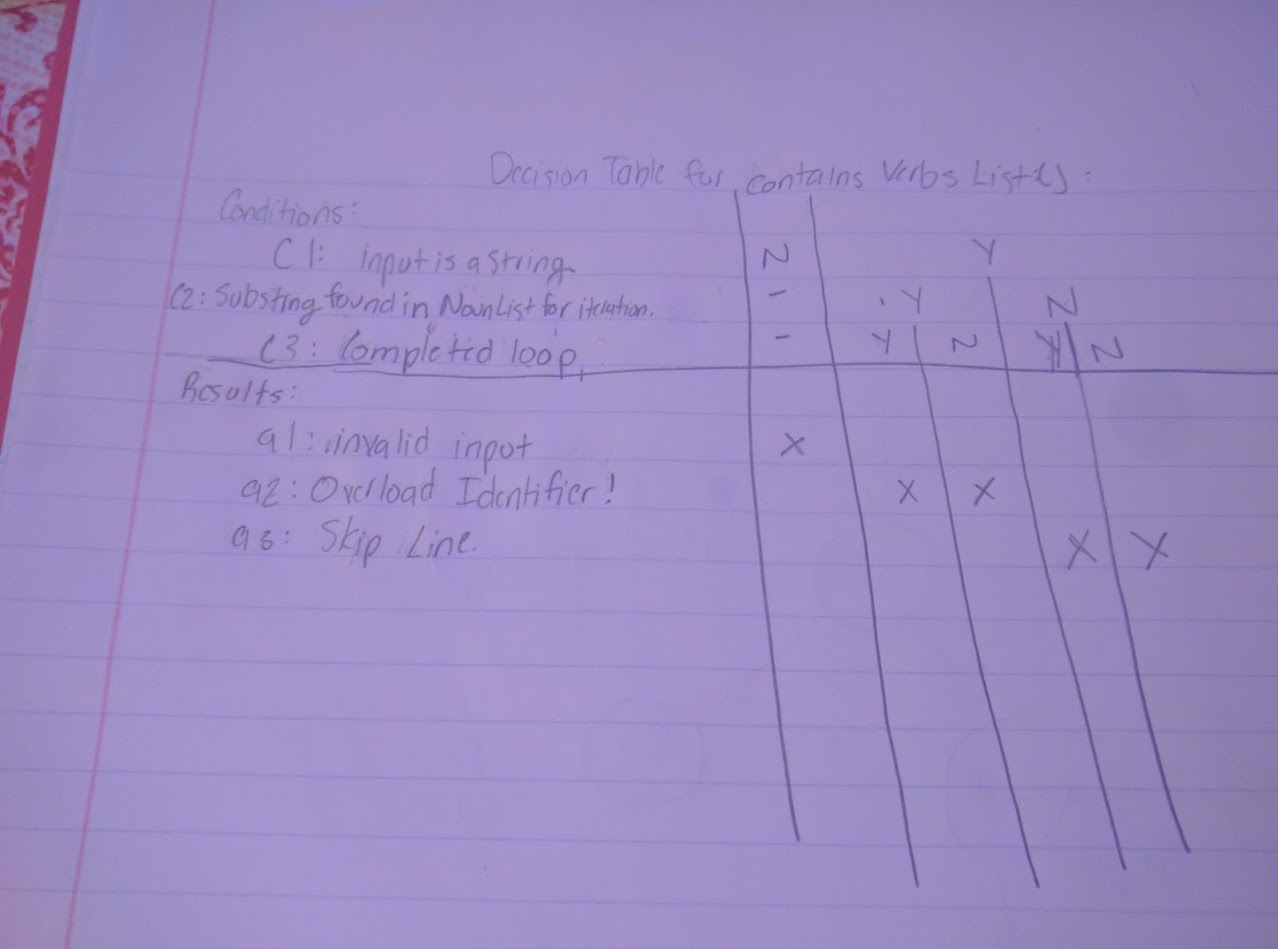 Decision Table for contains Verbs List():
Conditions:
C1: input is a string N Y
C2: Substing found in NounList for iteration. - Y N
C3: Completed loop - Y N Y N
Results:
a1: invalid input X
a2: Overload Identifier! X X
a3: Skip Line. X X